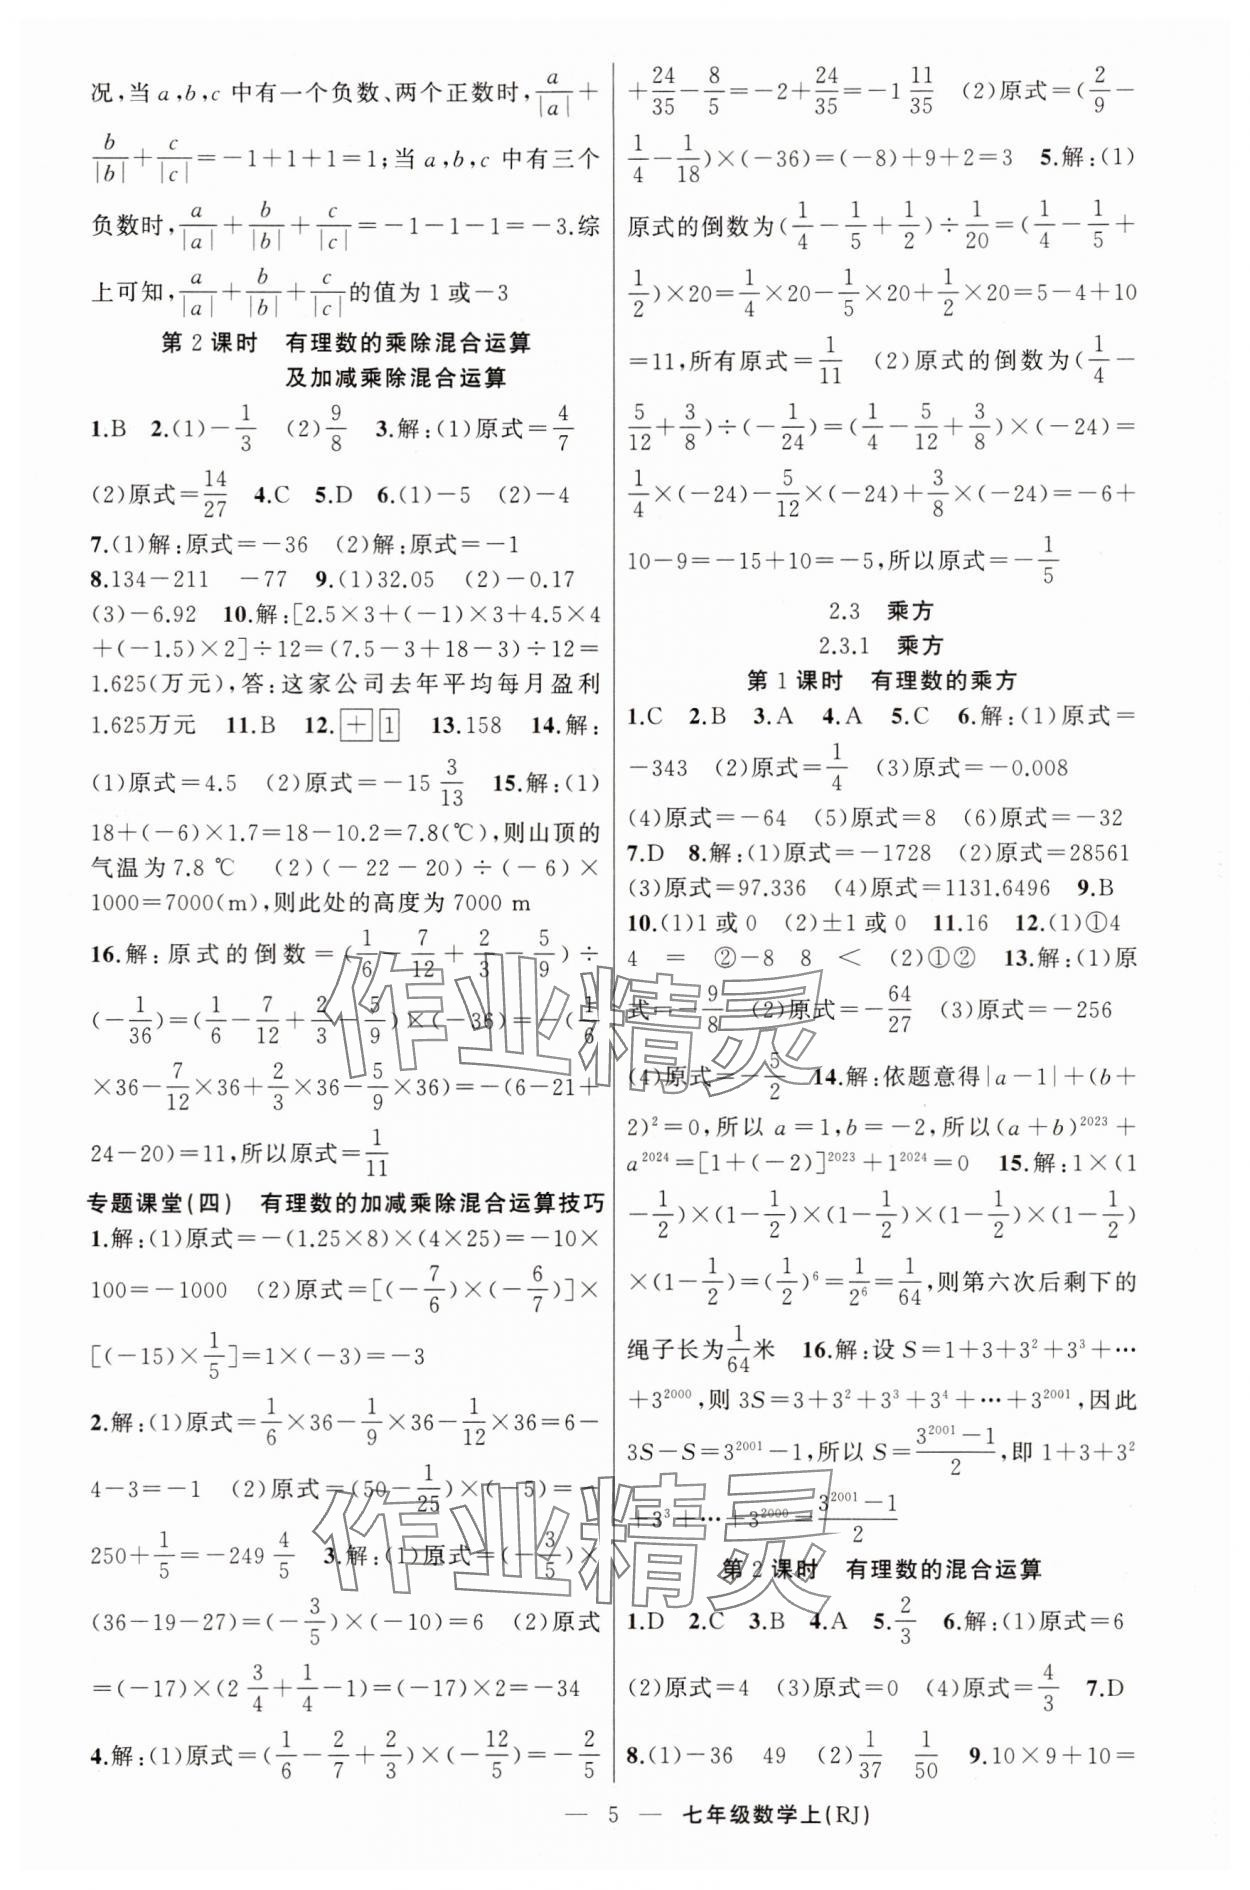 况,当 a,b,c 中有一个负数、两个正数时,a/|a|+
b/|b|+c/|c|=-1+1+1=1;当 a,b,c 中有三个
负数时,a/|a|+b/|b|+c/|c|=-1-1-1=-3.综
上可知,a/|a|+b/|b|+c/|c|的值为 1 或-3
第 2 课时 有理数的乘除混合运算
及加减乘除混合运算
1.B 2.(1)-1/3 (2)9/8 3.解:(1)原式=4/7
(2)原式=14/27 4.C 5.D 6.(1)-5 (2)-4
7.(1)解:原式=-36 (2)解:原式=-1
8.134-211 -77 9.(1)32.05 (2)-0.17
(3)-6.92 10.解:[2.5×3+(-1)×3+4.5×4
+(-1.5)×2]÷12=(7.5-3+18-3)÷12=
1.625(万元),答:这家公司去年平均每月盈利
1.625万元 11.B 12.+ 1 13.158 14.解:
(1)原式=4.5 (2)原式=-15 3/13 15.解:(1)
18+(-6)×1.7=18-10.2=7.8(℃),则山顶的
气温为 7.8 ℃ (2)(-22-20)÷(-6)×
1000=7000(m),则此处的高度为 7000 m
16.解:原式的倒数=(1/6-7/12+2/3-5/9)÷
(-1/36)=(1/6-7/12+2/3-5/9)×(-36)=-(1/6
×36-7/12×36+2/3×36-5/9×36)=-(6-21+
24-20)=11,所以原式=1/11
专题课堂(四) 有理数的加减乘除混合运算技巧
1.解:(1)原式=-(1.25×8)×(4×25)=-10×
100=-1000 (2)原式=[(-7/6)×(-6/7)]×
[(-15)×1/5]=1×(-3)=-3
2.解:(1)原式=1/6×36-1/9×36-1/12×36=6-
4-3=-1 (2)原式=(50-1/25)×(-5)=-
250+1/5=-249 4/5 3.解:(1)原式=(-3/5)×
(36-19-27)=(-3/5)×(-10)=6 (2)原式
=(-17)×(2 3/4+1/4-1)=(-17)×2=-34
4.解:(1)原式=(1/6-2/7+2/3)×(-12/5)=-2/5
+24/35-8/5=-2+24/35=-1 11/35 (2)原式=(2/9-
1/4-1/18)×(-36)=(-8)+9+2=3 5.解:(1)
原式的倒数为(1/4-1/5+1/2)÷1/20=(1/4-1/5+
1/2)×20=1/4×20-1/5×20+1/2×20=5-4+10
=11,所有原式=1/11 (2)原式的倒数为(1/4-
5/12+3/8)÷(-1/24)=(1/4-5/12+3/8)×(-24)=
1/4×(-24)-5/12×(-24)+3/8×(-24)=-6+
10-9=-15+10=-5,所以原式=-1/5
2.3 乘方
2.3.1 乘方
第 1 课时 有理数的乘方
1.C 2.B 3.A 4.A 5.C 6.解:(1)原式=
-343 (2)原式=1/4 (3)原式=-0.008
(4)原式=-64 (5)原式=8 (6)原式=-32
7.D 8.解:(1)原式=-1728 (2)原式=28561
(3)原式=97.336 (4)原式=1131.6496 9.B
10.(1)1 或 0 (2)±1 或 0 11.16 12.(1)①4
4 = ②-8 8 < (2)①② 13.解:(1)原
式=-9/8 (2)原式=-64/27 (3)原式=-256
(4)原式=-5/2 14.解:依题意得|a-1|+(b+
2)²=0,所以 a=1,b=-2,所以(a+b)²⁰²³+
a²⁰²⁴=[1+(-2)]²⁰²³+1²⁰²⁴=0 15.解:1×(1
-1/2)×(1-1/2)×(1-1/2)×(1-1/2)×(1-1/2)
×(1-1/2)=(1/2)⁶=1/2⁶=1/64,则第六次后剩下的
绳子长为1/64米 16.解:设 S=1+3+3²+3³+…
+3²⁰⁰⁰,则 3S=3+3²+3³+3⁴+…+3²⁰⁰¹,因此
3S-S=3²⁰⁰¹-1,所以 S=(3²⁰⁰¹-1)/2,即 1+3+3²
+3³+…+3²⁰⁰⁰=(3²⁰⁰¹-1)/2
第 2 课时 有理数的混合运算
1.D 2.C 3.B 4.A 5.2/3 6.解:(1)原式=6
(2)原式=4 (3)原式=0 (4)原式=4/3 7.D
8.(1)-36 49 (2)1/37 1/50 9.10×9+10=
— 5 — 七年级数学上(RJ)
作业精灵
作业精灵